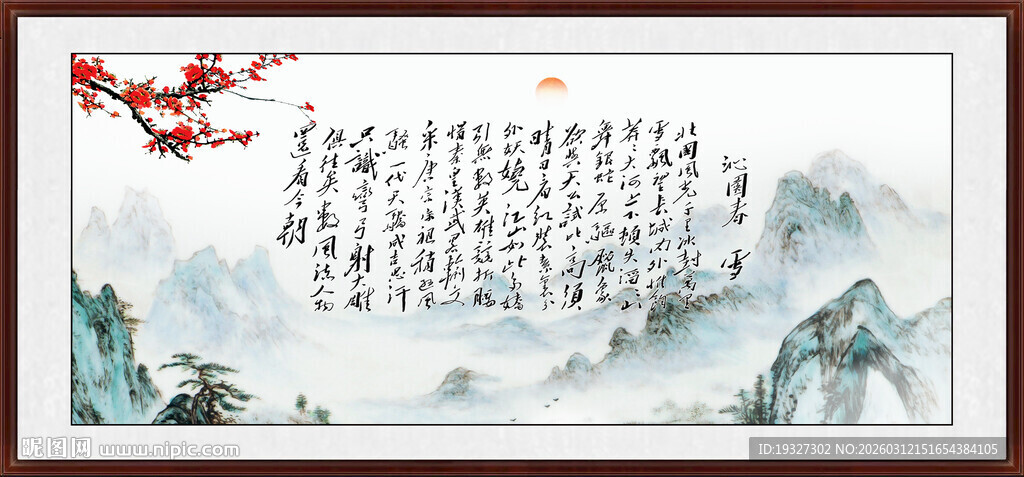 沁園春 雪
北國風光千里冰封萬里
雪飄望長城内外惟餘
莽〻大河上下頓失滔〻山
舞銀蛇原驅臘象
欲與天公試比高須
晴日看紅裝素裹分
外妖嬈江山如此多嬌
引無數英雄競折腰
惜秦皇漢武略輸文
采唐宗宋祖稍遜風
騷一代天驕成吉思汗
只識彎弓射大雕
俱往矣數風流人物
還看今朝
昵图网 www.nipic.com
ID:19327302 NO:20260312151654384105